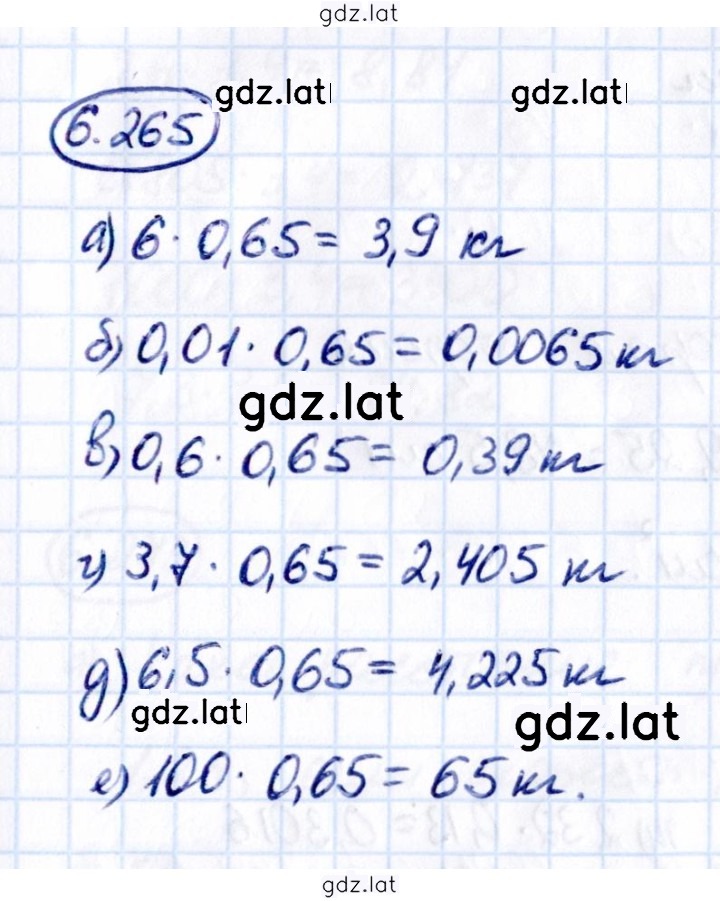 gdz.lat
gdz.lat gdz.lat
6.265
а) 6 · 0,65 = 3,9 кг
б) 0,01 · 0,65 = 0,0065 кг
gdz.lat
в) 0,6 · 0,65 = 0,39 кг
г) 3,7 · 0,65 = 2,405 кг
д) 6,5 · 0,65 = 4,225 кг
gdz.lat gdz.lat
е) 100 · 0,65 = 65 кг.
gdz.lat